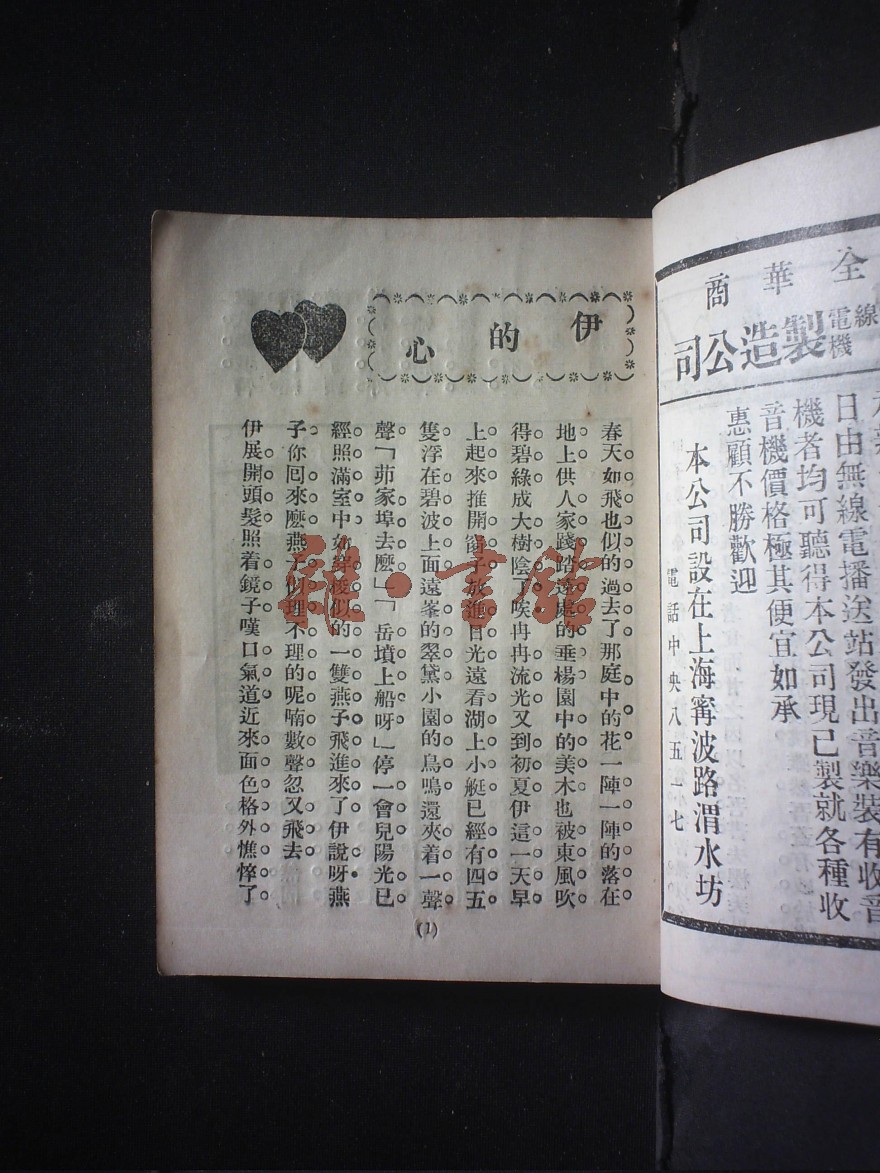 全華商
線電機製造公司
日由無線電播送站發出音樂裝有收音
機者均可聽得本公司現已製就各種收
音機價格極其便宜如承
惠顧不勝歡迎
本公司設在上海甯波路渭水坊
電話中央八五一七
伊的心
春天如飛也似的過去了那庭中的花一陣一陣的落在
地上供人家踐踏遠處的垂楊園中的美木也被東風吹
得碧綠成大樹陰了唉冉冉流光又到初夏伊這一天早
上起來推開窗子放進日光遠看湖上小艇已經有四五
隻浮在碧波上面遠峯的翠黛小園的鳥鳴還夾着一聲
聲「茆家埠去麽」「岳墳上船呀」停一會兒陽光已
經照滿室中如穿梭似的一雙燕子飛進來了伊說呀燕
子你囘來麽燕子似理不理的呢喃數聲忽又飛去
伊展開頭髮照着鏡子嘆口氣道近來面色格外憔悴了
(1)
雜·書館